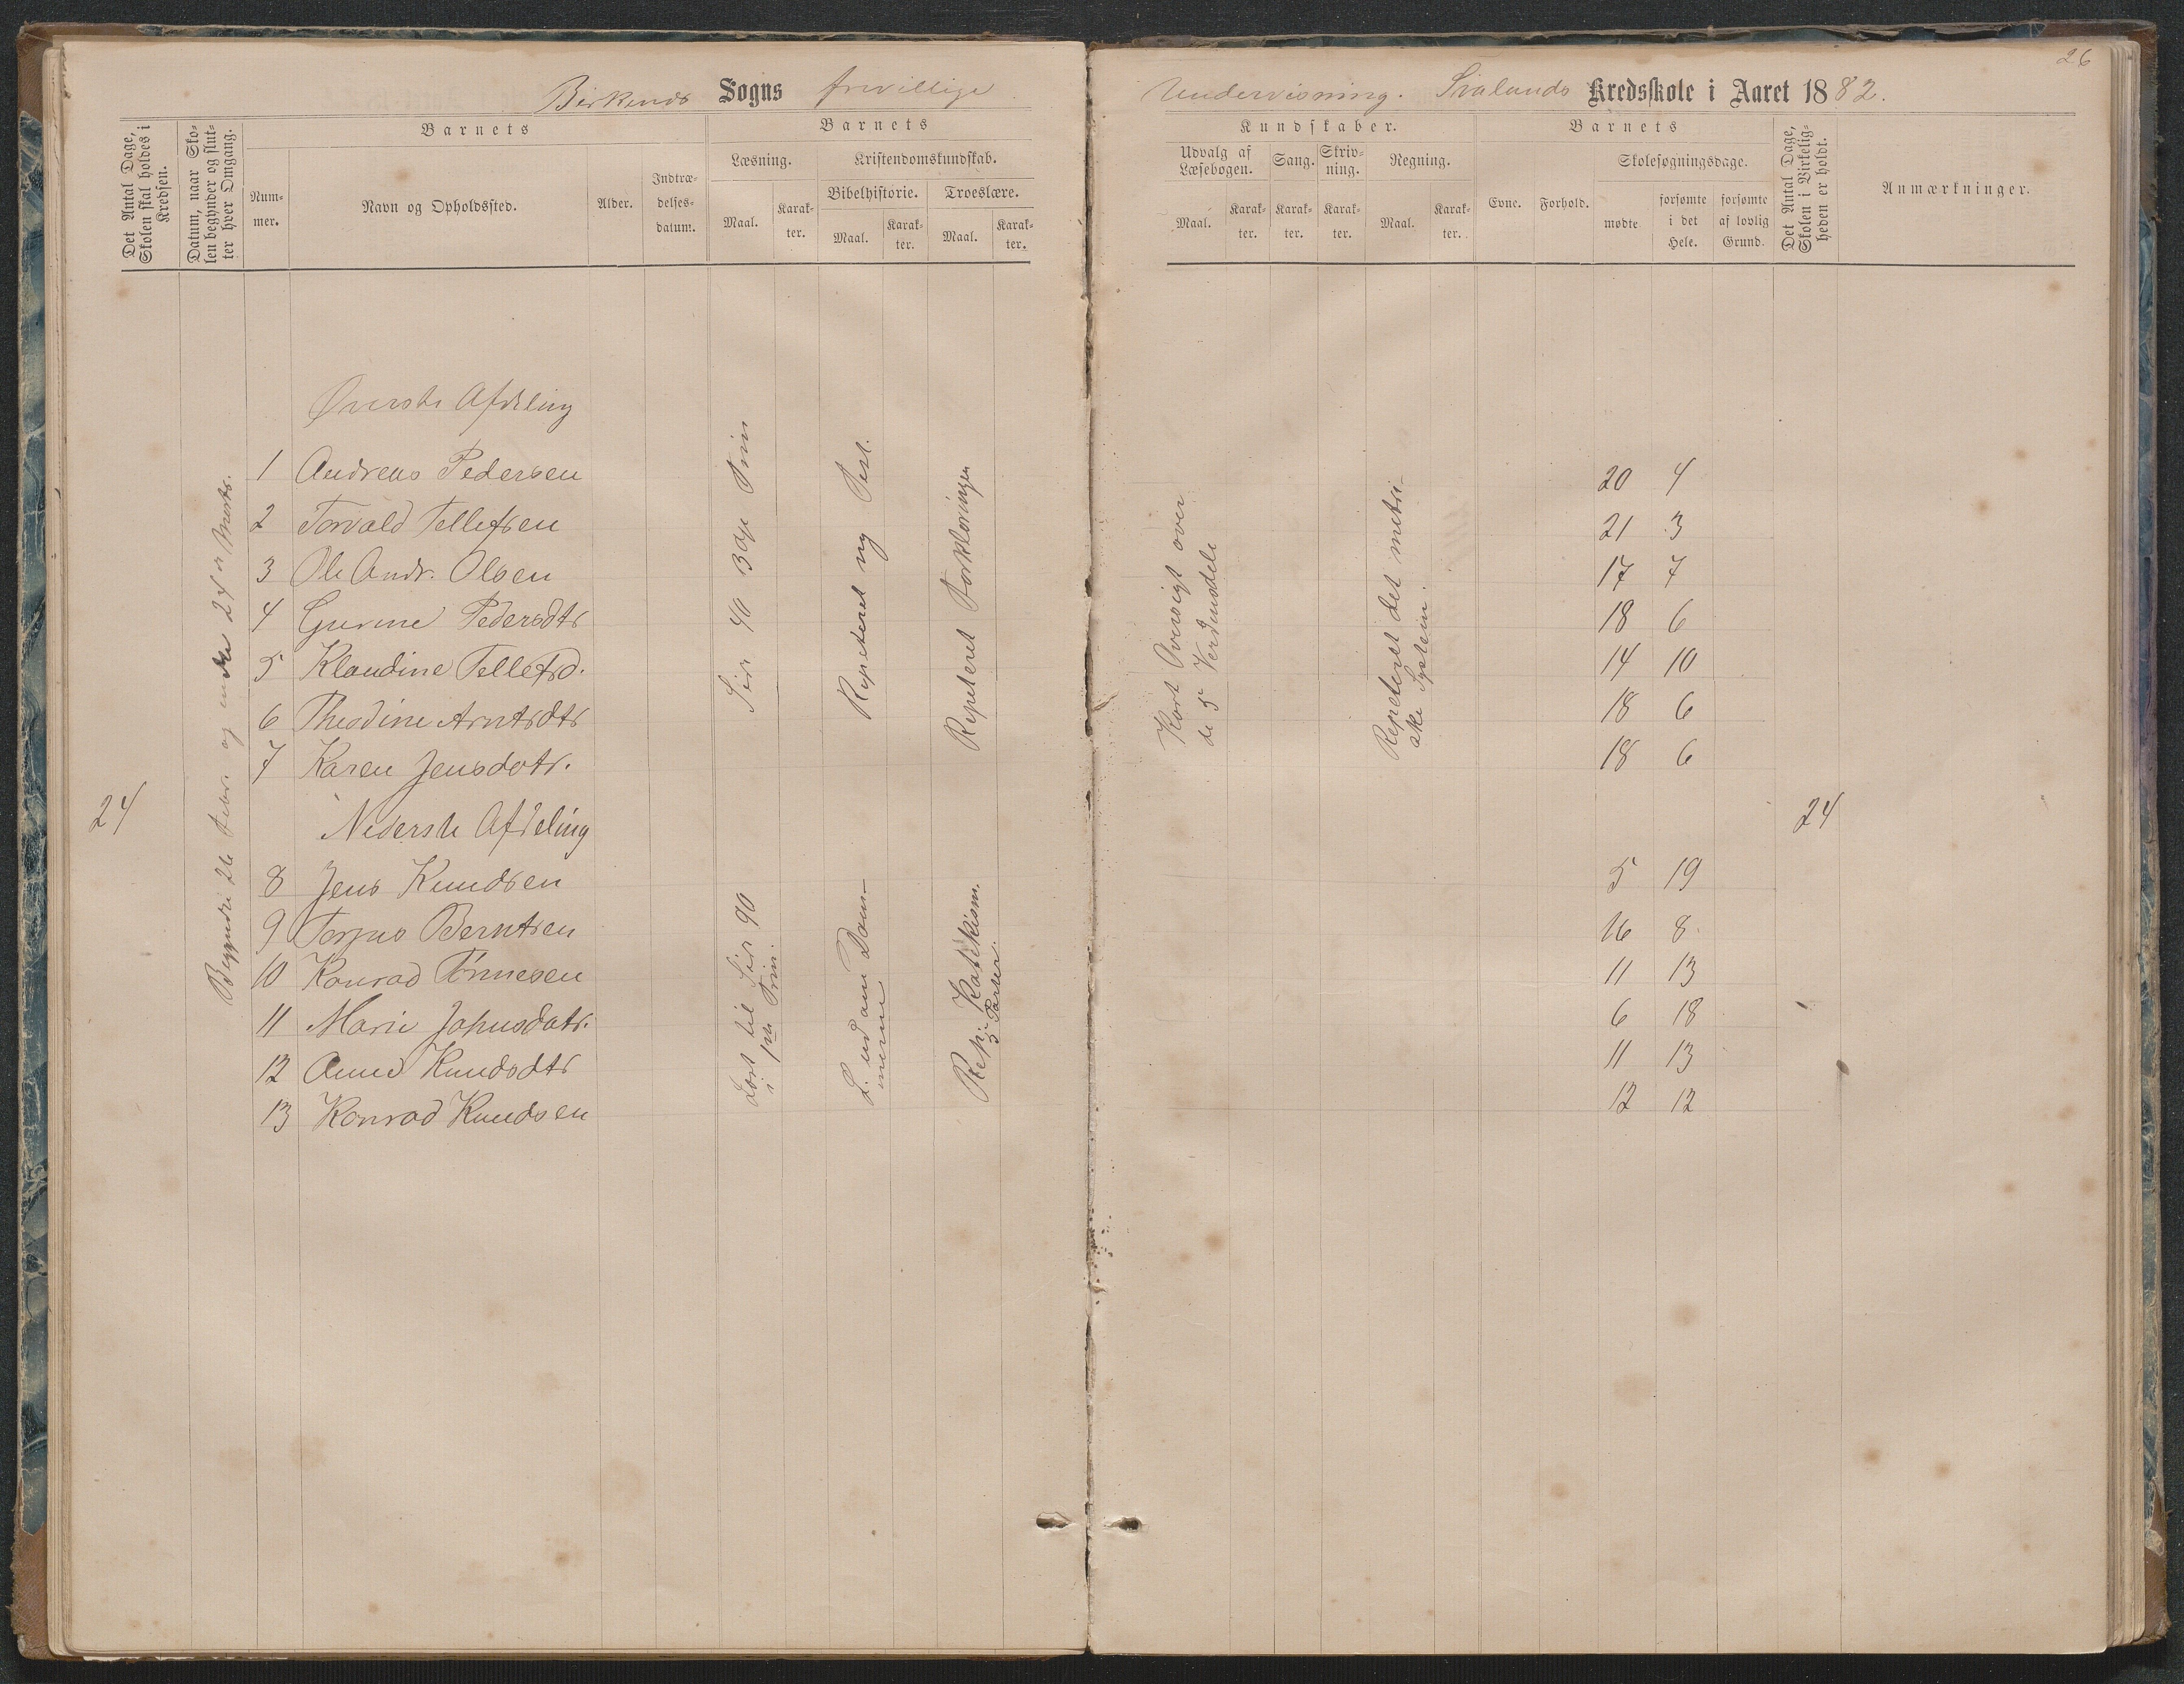 26
Birkends Sogns frivillige Undervisning. Svalands Kredsskole i Aaret 1882.
Det Antal Dage, Skolen skal holdes i Kredsen.
Datum, naar Skolen begynder og slutter hver Omgang.
Barnets
Nummer.
Navn og Opholdssted.
Alder.
Indtrædelsesdatum.
Barnets
Læsning.
Maal.
Karakter.
Kristendomskundskab.
Bibelhistorie.
Maal.
Karakter.
Troeslære.
Maal.
Karakter.
Kundskaber.
Udvalg af Læsebogen.
Maal.
Karakter.
Sang.
Karakter.
Skrivning.
Karakter.
Regning.
Maal.
Karakter.
Barnets
Evne.
Forhold.
Skolesøgningsdage.
mødte
forsømte i det Hele.
forsømte af lovlig Grund.
Det Antal Dage, Skolen i Virkeligheden er holdt.
Anmærkninger.
Øverste Afdeling
1 Andreas Pedersen 20 4
2 Torvald Tellefsen 21 3
3 Ole Andr. Olsen 17 7
4 Gurine Pedersdtr 18 6
5 Klaudine Tellefsd. 14 10
6 Theodine Arntsdtr 18 6
7 Karen Jensdotr. 18 6
24
Begyndte 26 Febr. og endte 24de Marts.
Repeteret
Repeteret Forklaringen
Kort Oversigt over
de 5 Verdensdele
Repeteret det metri-
ske System.
24
Nederste Afdeling
8 Jens Knudsen 5 19
9 Torjus Berntsen 16 8
10 Konrad Tønnesen 11 13
11 Marie Johnsdatr. 6 18
12 Anne Knudsdtr 11 13
13 Konrad Knudsen 12 12
Læst til Side 90
i 1ste Trin.
Rep. Katekism.
5 Parter.